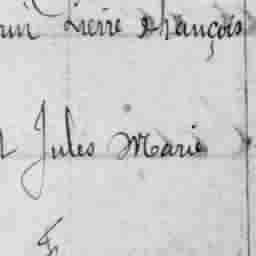 Pierre François
Jules Marie